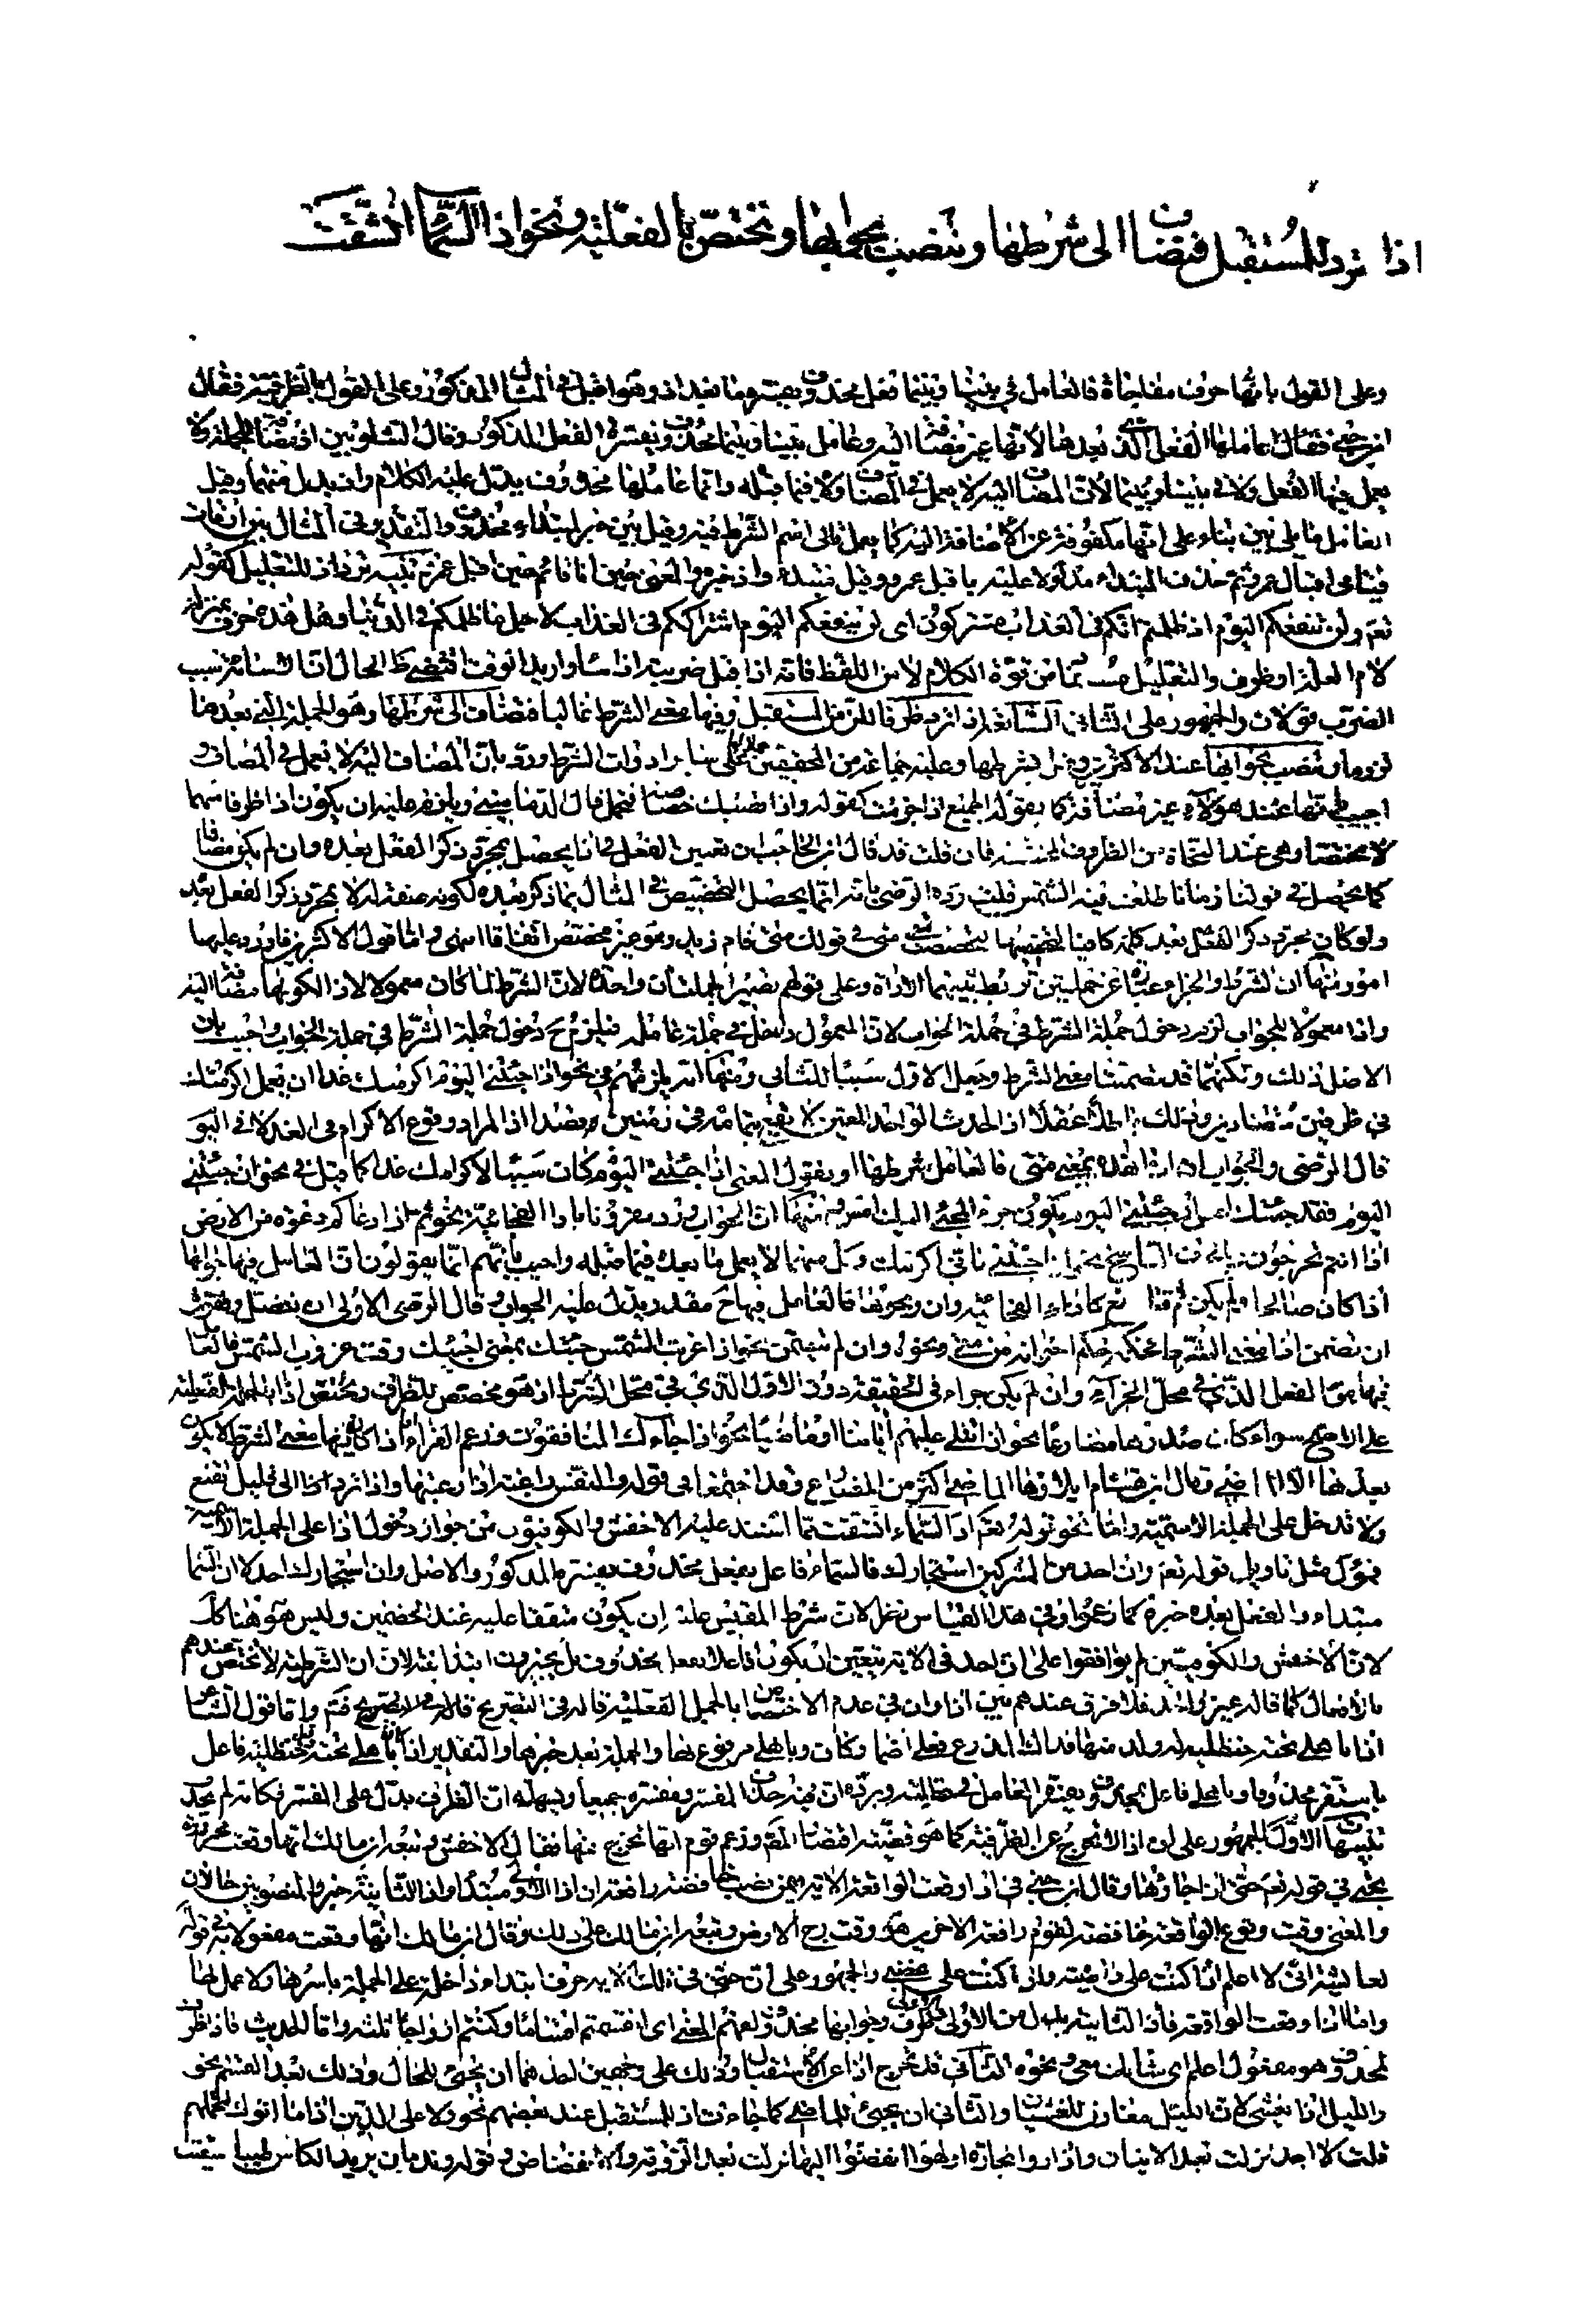 اذا ترد للمستقبل فتضاف الى شرطها وتنصب بجوابها وتختص بالفعلية ونحو اذا السماء انشقت
وعلى القول بانها حرف مفاجاة فالعامل في بينا وبينما فعل محذوف يفسره ما بعد اذ وهو اقبل في المثال المذكور وعلى القول بالظرفية فقال
ابن جني فقال عاملها الفعل الذي بعدها لانها غير مضافة اليه وعامل بينا وبينما محذوف ويفسره الفعل المذكور وقال الشلوبين اذ مضافة للجملة ولا
يعمل فيها الفعل ولا في بينا وبينما لان المضاف اليه لا يعمل في المضاف ولا فيما قبله وانما عاملها محذوف يدل عليه الكلام واذ بدل منهما وقيل
العامل ما يلي بين بناء على انها مكفوفة عن الاضافة اليه كما يعمل تالي اسم الشرط فيه وقيل بين خبر لمبتداء محذوف والتقدير في المثال بين اوقات
قيامي اقبال عمرو ثم حذف المبتداء مدلولا عليه باقبل عمرو وقيل مبتداء واذ خبره والمعنى حين انا قائم حين اقبل عمرو تنبيه ترد اذ للتعليل كقوله
تعم ولن ينفعكم اليوم اذ ظلمتم انكم في العذاب مشتركون اى لن ينفعكم اليوم اشتراككم في العذاب لاجل ما ظلمكم في الدنيا وهل هذه حرف بمنزلة
لام العلة او ظرف والتعليل مستفاد من قوة الكلام لا من اللفظ فانه اذا قيل ضربته اذ اساء واريد الوقت اقتضى ظ الحال ان الاساءة سبب
الضرب قولان والجمهور على الثاني السابعة اذا ترد ظرفا للزمن المستقبل وفيها معنى الشرط غالبا فتضاف الى شرطها وهو الجملة التي بعدها
لزوما وتنصب بجوابها عند الاكثرين وقيل بشرطها وعليه جماعة من المحققين حملا لها على سائر ادوات الشرط ورد بان المضاف اليه لا يعمل في المضاف و
اجيب بانها عند هولاء غير مضافة كما يقوله الجميع اذا جزمت كقوله واذا تصبك خصاصة فتحمل قال الدماميني ويلزم عليه ان يكون اذا ظرفا مبهما
لا مختصا وهي عند النحاة من الظروف المختصة فان قلت قد قال ابن الحاجب ان تعيين الفعل في اذا يحصل بمجرد ذكر الفعل بعده وان لم يكن مضافا
كما يحصل في قولنا زمانا طلعت فيه الشمس قلت رده الرضى بانه انما يحصل التخصيص في المثال بما ذكر بعده لكونه صفة له لا بمجرد ذكر الفعل بعده
ولو كان مجرد ذكر الفعل بعد كلمة كافيا لتخصيصها لتخصصت متى في قولك متى قام زيد وهو غير مختص اتفاقا انتهى واما قول الاكثرين فاورد عليها
امور منها ان الشرط والجزاء عبارة عن جملتين تربط بينهما الاداة وعلى قولهم تصير الجملتان واحدة لان الشرط لما كان معمولا لاذا لكونها مضافة اليه
واذا معمولا للجواب لزم دخول جملة الشرط في جملة الجواب لان المعمول داخل في جملة عامله فيلزم ح دخول جملة الشرط في جملة الجواب واجيب بان
الاصل ذلك ولكنهما قد تضمنتا معنى الشرط وجعل الاول سببا للثاني ومنها انه يلزمهم في نحو اذا جئتني اليوم اكرمتك غدا ان يعمل اكرمتك
في ظرفين متضادين وذلك باطل عقلا اذ الحدث الواحد المعين لا يقع بتمامه في زمنين وقصدا اذ المراد وقوع الاكرام في الغد لا في اليوم
قال الرضى والجواب ان اذا هذه بمعنى متى فالعامل شرطها او يقول المعنى اذا جئتني اليوم كان سببا لاكرامك غدا كما قيل في نحو ان جئتني
اليوم فقد جئتك امس ان جئتني اليوم يكون جزء المجئ اليك امس ومنها ان الجواب ورد مقرونا باذا الفجائية نحو ثم اذا دعاكم دعوة من الارض
اذا انتم تخرجون وبالحرف الناسخ نحو اذا جئتني فاني اكرمك وكل منهما لا يعمل ما بعده فيما قبله واجيب بانهم انما يقولون ان العامل فيها جوابها
اذا كان صالحا ولم يكن ثم مانع كاذاء الفجائية وان ونحوها فالعامل فيها ح مقدر يدل عليه الجواب وقال الرضى الاولى ان نفصل ونقول
ان تضمن اذا معنى الشرط فحكمه حكم اخواته من متى ونحوه وان لم تتضمن نحو اذا غربت الشمس جئتك بمعنى اجيئك وقت غروب الشمس فالعامل
فيها هو الفعل الذي في محل الجزاء وان لم يكن جزاء في الحقيقة دون الاول الذي في محل الشرط اذ هو مخصص للظرف وتختص اذا بالجملة الفعلية
على الاصح سواء كان صدرها مضارعا نحو اذا تتلى عليهم اياتنا او ماضيا نحو اذا جاءك المنافقون وزعم الفراء ان اذا كان فيها معنى الشرط لا يكون
بعدها الا الماضي وقال ابن هشام ايلاؤها الماضي اكثر من المضارع وقد اجتمعا في قوله والنفس راغبة اذا رغبتها واذا ترد الى قليل تقنع
ولا تدخل على الجملة الاسمية واما نحو قوله تعم اذا السماء انشقت مما استند عليه الاخفش والكوفيون من جواز دخول اذا على الجملة الاسمية
فمؤل مثل تاويل قوله تعم وان احد من المشركين استجارك فالسماء فاعل بفعل محذوف يفسره المذكور والاصل وان استجارك احد لا ان السماء
مبتداء والفعل بعده خبره كما زعموا وفي هذا القياس نظر لان شرط المقيس عليه ان يكون متفقا عليه عند الخصمين وليس هو هنا كك
لان الاخفش والكوفيين لم يوافقوا على ان احد في الاية يتعين ان يكون فاعلا بفعل محذوف بل يجيزون ابتدائيته لان ان الشرطية لا تختص عندهم
بالافعال كما قاله غير واحد فلا فرق عندهم بين اذا وان في عدم الاختصاص بالجمل الفعلية قاله في التصريح واما قول الشاعر
اذا باهلي تحته حنظلية له ولد منها فذاك المذرع فعلى اضمار كان وباهلي مرفوع بها والجملة بعد خبرها والتقدير اذا كان باهلي تحته وقيل حنظلية فاعل
باستقر محذوفا وباهلي فاعل بمحذوف يفسره العامل في حنظلية ويرده ان فيه حذف المفسر ومفسره جميعا ويسهله ان الظرف يدل على المفسر فكانه لم يحذف
تنبيهات الاول الجمهور على ان اذا لا تخرج عن الظرفية كما هو قضيته اقتضاء المتن وزعم قوم انها تخرج عنها فقال الاخفش وتبعه ابن مالك انها وقعت مجرورة
بحتى في قوله تعم حتى اذا جاؤها وقال ابن جني في اذا وقعت الواقعة الاية فيمن نصب خافضة رافعة ان اذا الاولى مبتدا واذا الثانية خبر والمنصوبين حالان
والمعنى وقت وقوع الواقعة خافضة لقوم رافعة لاخرين هو وقت رج الارض وتبعه ابن مالك على ذلك وقال ابن مالك انها وقعت مفعولا في قوله
لعايشة اني لاعلم اذا كنت على راضية واذا كنت على غضبى والجمهور على ان حتى في تلك الاية حرف ابتداء داخلة على الجملة باسرها ولا عمل لها
واما اذا وقعت الواقعة فاذا الثانية بدل من الاولى والاولى ظرف وجوابها محذوف لفهم المعنى اى انقسمتم اقساما وكنتم ازواجا ثلثة واما الحديث فاذا ظرف
لمحذوف وهو مفعول اعلم اى شانك معي ونحوه الثاني قد تخرج اذا عن الاستقبال وذلك على وجهين احدهما ان يجئ للحال وذلك بعد القسم نحو
والليل اذا يغشى لان الليل مقارن للغشيان والثاني ان يجئ للماضي كما جاءت اذ للمستقبل عند بعضهم نحو ولا على الذين اذا ما اتوك لتحملهم
قلت لا اجد نزلت بعد الاتيان واذا راوا تجارة او لهوا انفضوا اليها نزلت بعد الرؤية والانفضاض وقوله وندمان يزيد الكاس طيبا سقيت